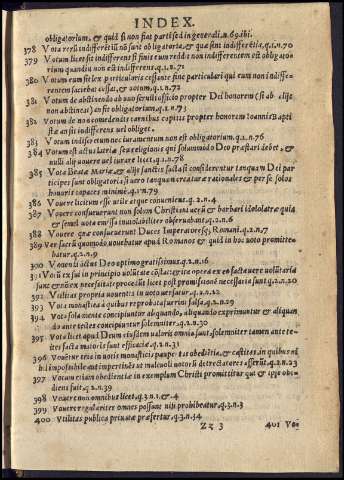 INDEX.
obligatorium, & quid si non fiat partis ed in generali.n.69.ibi.
378 Vota rerū indifferētiū nō sunt obligatoria, & quæ sint indifferētia.q.1.n.70
379 Votum licet sit indifferens si finis eum reddit non indifferentem est obligatorium quandiu non est indifferens.q.1.n.71
380 Votum cum fit lex particularis cessante fine particulari qui eum non indifferentem faciebat cessat, & votum.q.1.n.72
381 Votum de abstinendo ab usu servili officio propter Dei honorem (si ab alijs non abstineas) an sit obligatorium.q.1.n.73
382 Votum de non comedendis carnibus capitis propter honorem Ioannis Baptistæ an sit indifferens vel obliget.
383 Votum indifferentium nec iuramentum non est obligatorium.q.1.n.76
384 Votum est actus latriæ seu religionis qui solummodo Deo præstari debet, & nulli alij vovere vel iurare licet.q.1.n.78
385 Vota Beatæ Mariæ, & alijs sanctis facta si consideretur tanquam Dei participes sunt obligatoria si vero tanquam creaturæ rationales & per se solos honoris capaces minimè.q.1.n.79
386 Vovere licitum esse utile atque conveniens.q.2.n.4
387 Vovere consueverunt non solum Christiani verū & barbari idololatræ quia & semel vota emissa inviolabiliter observabant.q.2.n.6
388 Vovere quæ consueverunt Duces Imperatoresq; Romani.q.2.n.7
389 Ver sacrū quomodo vovebatur apud Romanos & quid in hoc voto promittebatur.q.2.n.9
390 Vovendi actus Deo optimo gratissimus.q.2.n.16
391 Voti ex sui in principio voluntate cōstat certe opera ex eo facta vere voluntaria sunt & nō ex necessitate procedūt licet post promissionē necessaria sunt q.2.n.20
392 Vtilitas propria voventis in voto versatur.q.2.n.22
393 Vota monastica à quibus reprobata fuerint falsæ.q.2.n.29
394 Vota solemne concipiuntur aliquando, aliquando exprimuntur & aliquando ante testes concipiuntur solemniter.q.2.n.30
395 Vota licet apud Deum eiusdem valoris omnia sunt, solemniter tamen ante testes facta maioris sunt efficatiæ.q.2.n.31
396 Vovētur tria in votis monasticis paupertas obedientia, & castitas, in quibus nihil impossibile aut impertinēs ut malevoli notorii detrectatores asserūt.q.2.n.23
397 Votum etiam obedientiæ in exemplum Christi promittitur qui & ipse obediens fuit.q.2.n.39
398 Vovere non omnibus licet.q.3.n.1.&.4
399 Vovere regulariter omnes possunt nisi prohibeatur.q.3.n.3
400 Vtilitas publica privatæ præsertur.q.3.n.34
Zz 3
401 Vot